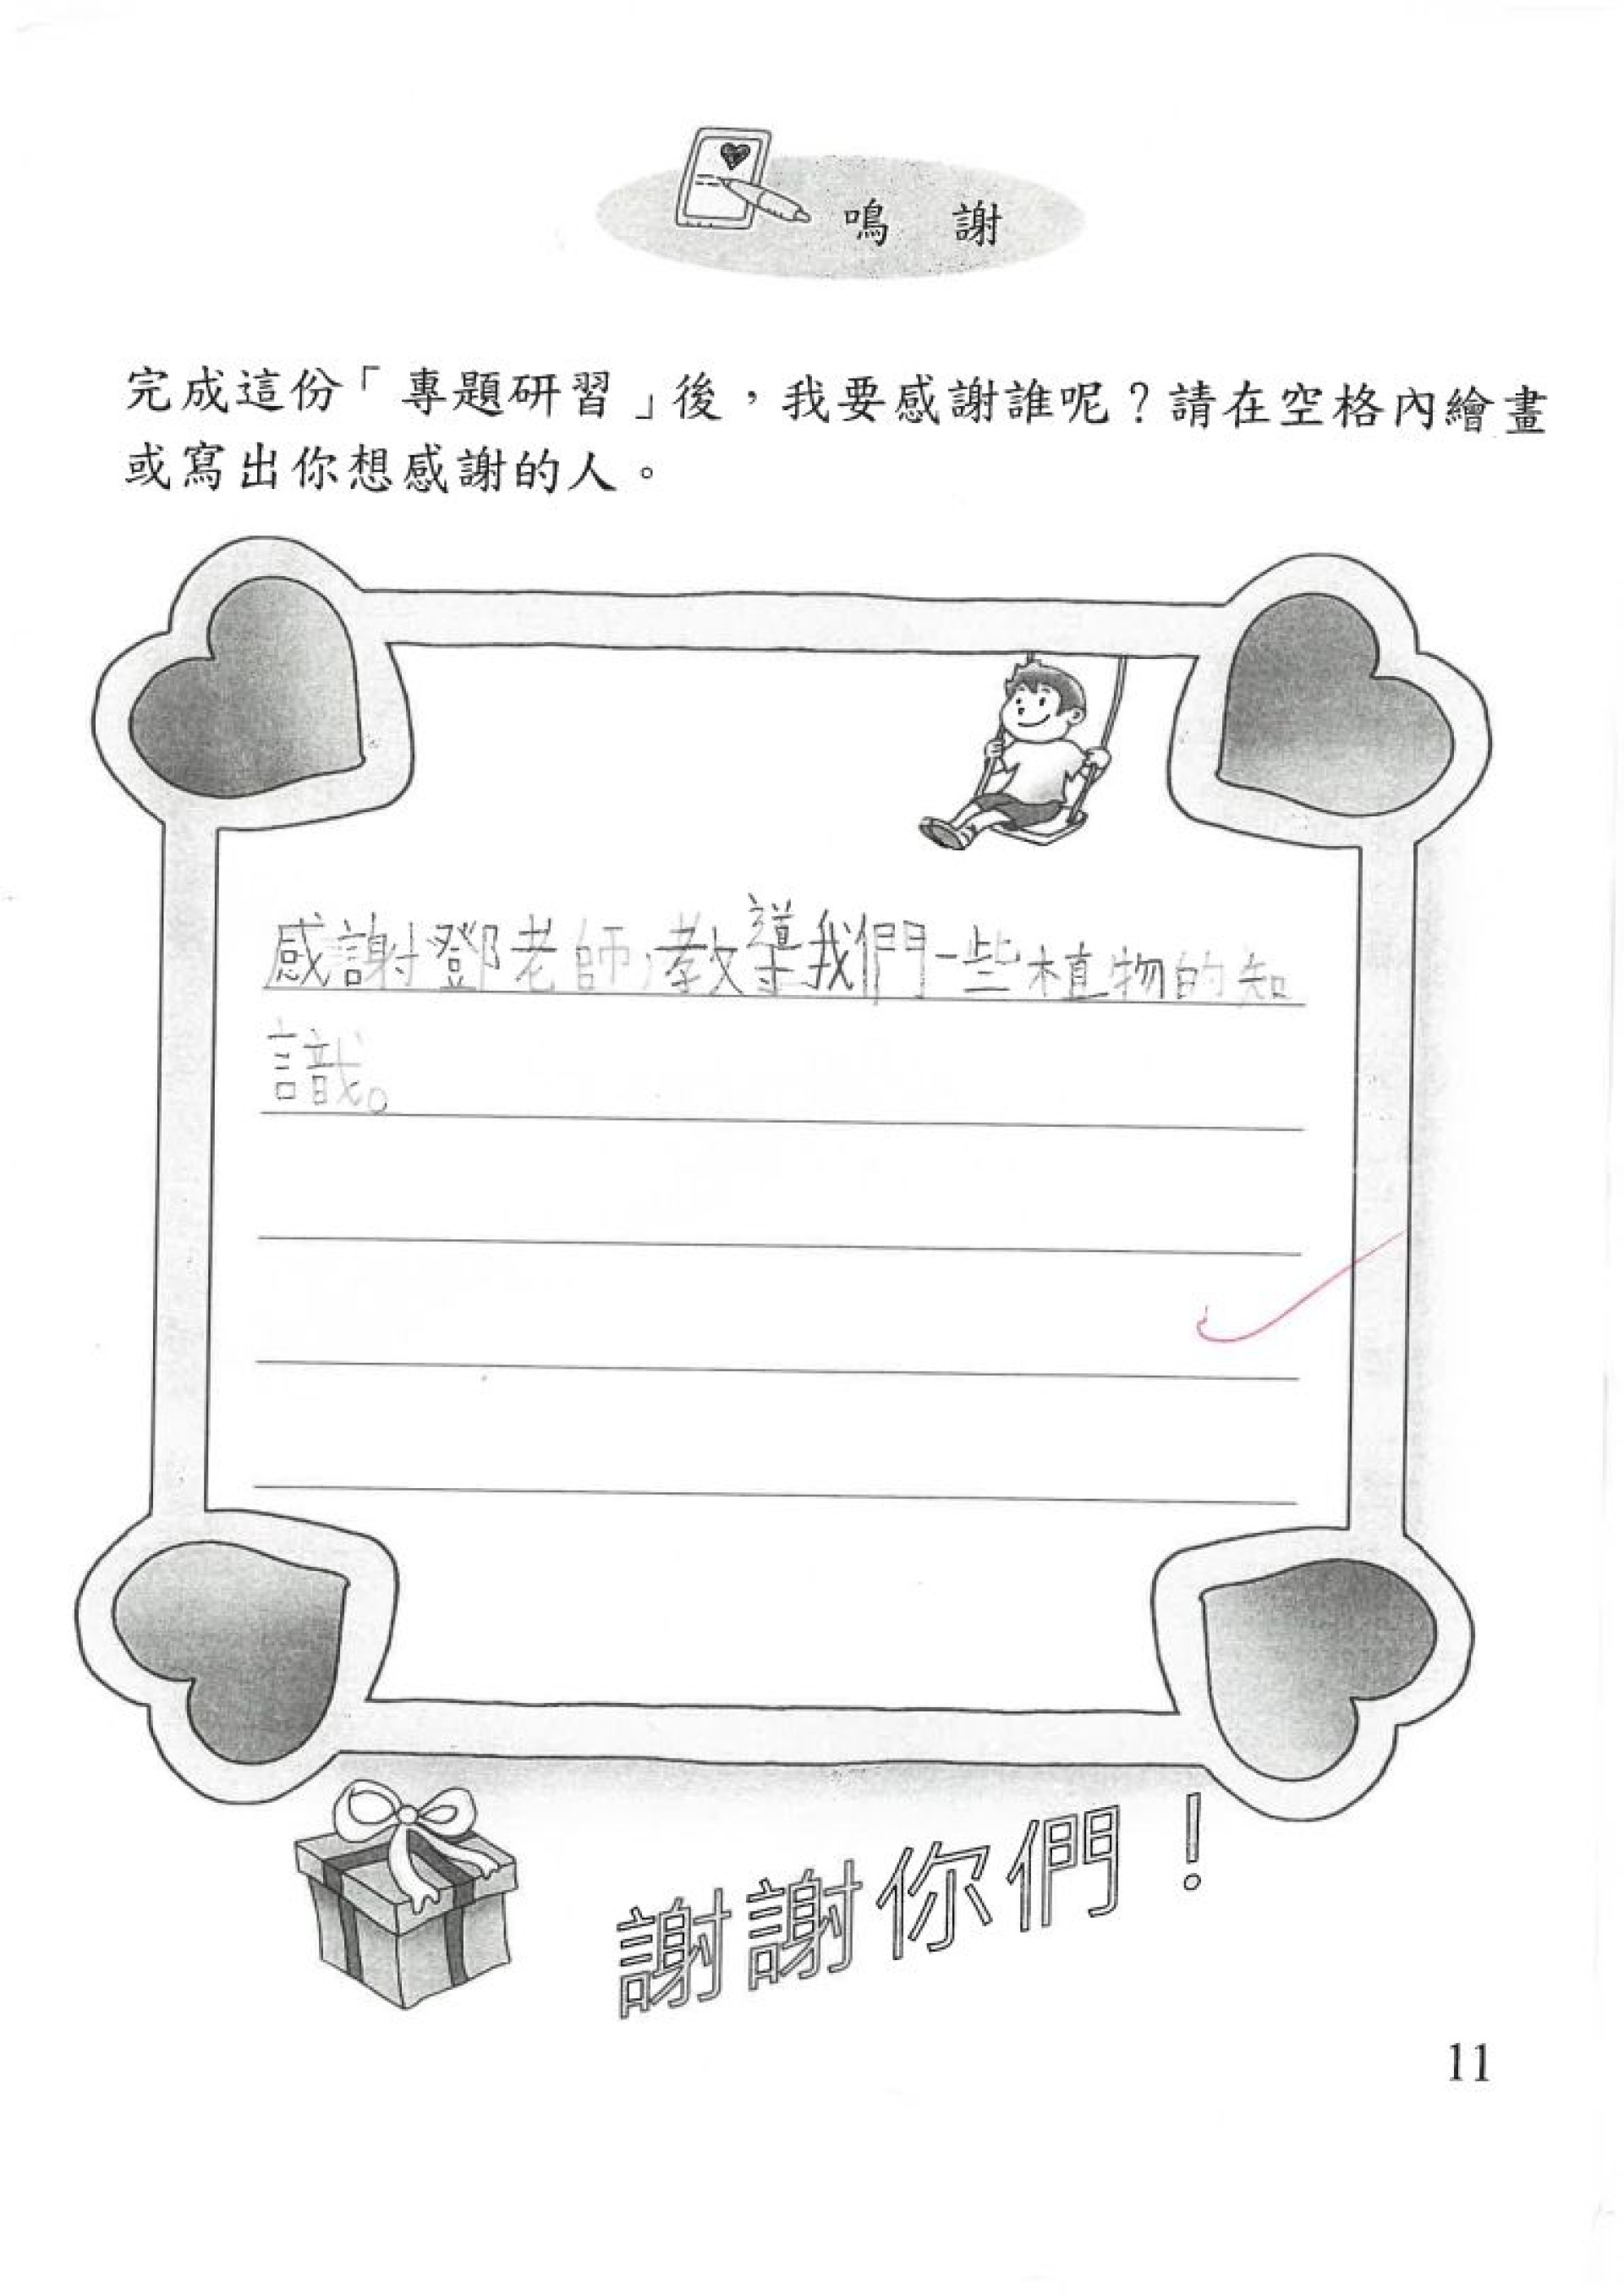 鳴 謝
完成這份「專題研習」後，我要感謝誰呢？請在空格內繪畫
或寫出你想感謝的人。
感謝鄧老師教導我們一些植物的知
識。
謝謝你們！
11